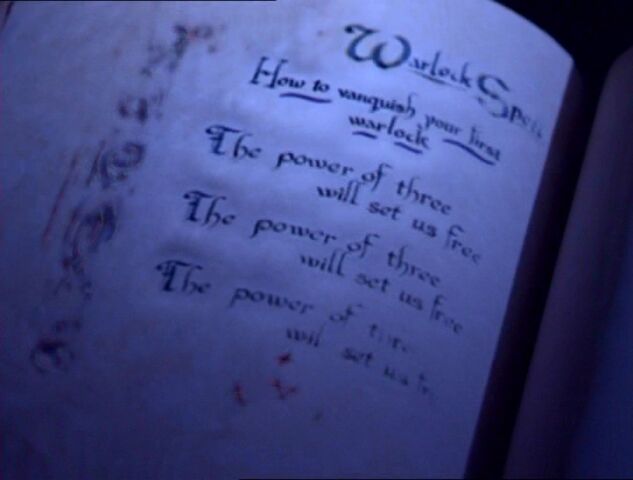 Warlock Spell
How to vanquish your first
warlock
The power of three
will set us free
The power of three
will set us free
The power of three
will set us fr